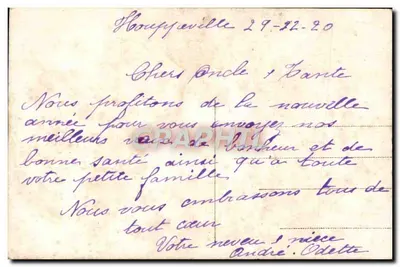 Houppeville 29-12-20
Chers Oncle & Tante
Nous profitons de la nouvelle
année pour vous envoyer nos
meilleurs vœux de bonheur et de
bonne santé ainsi qu'à toute
votre petite famille
Nous vous embrassons tous de
tout cœur
Votre neveu & nièce
André. Odette